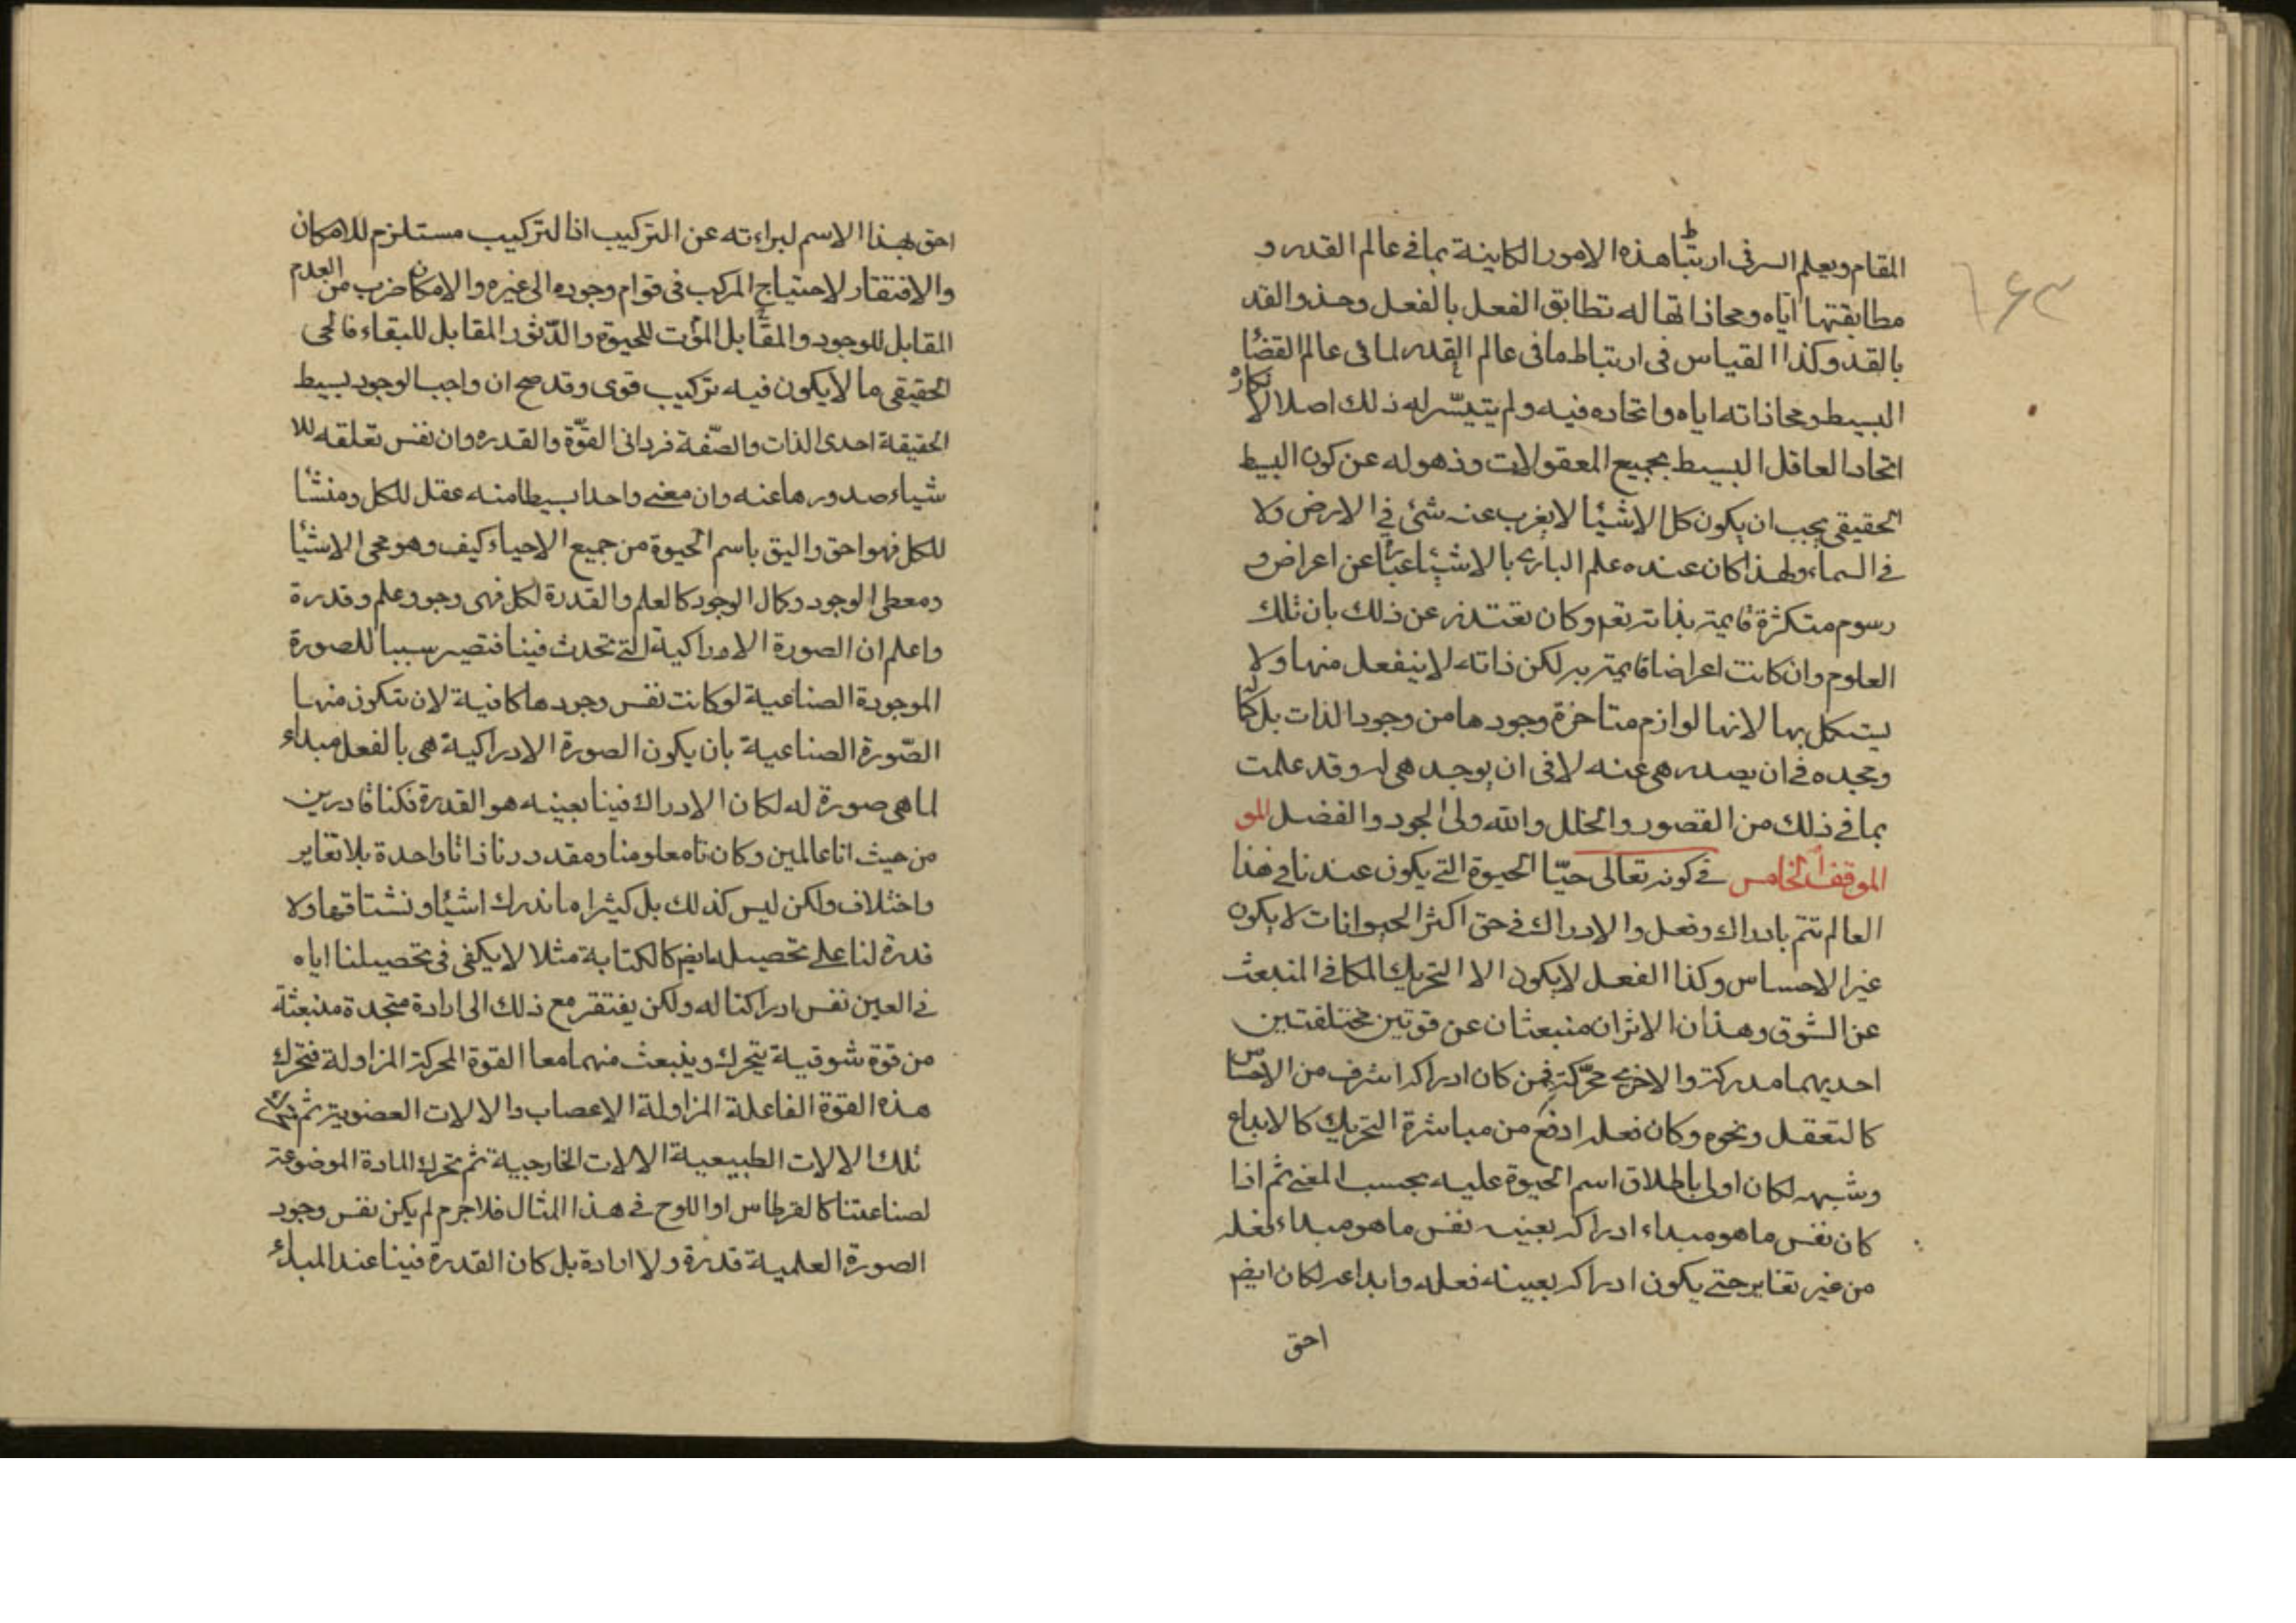 ١٤٣
المقام ويعلم السر فى ارتباط هذه الامور الكاينة بما فى عالم القدر و
مطابقتها اياه ومحاذاتها له تطابق الفعل بالفعل وحذو القد
بالقد وكذا القياس فى ارتباط ما فى عالم القدر لما فى عالم القضا
البسيط ومحاذاته اياه واتحاده فيه ولم يتيسّر له ذلك اصلا لانكاره
اتحاد العاقل البسيط بجميع المعقولات وذهوله عن كون البسيط
الحقيقى يجب ان يكون كل الاشيا لا يغرب عنه شئ فى الارض ولا
فى السماء ولهذا كان عنده علم البارى بالاشياء عبارة عن اعراض و
رسوم متكثرة قايمة بذاته تعم وكان تعتذر عن ذلك بان تلك
العلوم وان كانت اعراضا قايمة به لكن ذاته لا ينفعل منها ولا
يستكمل بها لانها لوازم متاخرة وجودها من وجود الذات بل كماله
ومجده فى ان يصدر هى عنه لا فى ان يوجد هى له وقد علمت
بما فى ذلك من القصور والخلل والله ولى الجود والفضل المو
الموقف الخامس فى كونه تعالى حيّا الحيوة التى يكون عندنا فى هذا
العالم تتم بادراك وفعل والادراك فى حق اكثر الحيوانات لا يكون
غير الاحساس وكذا الفعل لا يكون الا التحريك المكانى المنبعث
عن الشوق وهذان الاثران منبعثان عن قوتين مختلفتين
احديهما مدركة والاخرى محرّكة فمن كان ادراكه اشرف من الاحساس
كالتعقل ونحوه وكان فعله ارفع من مباشرة التحريك كالابداع
وشبهه لكان اولى باطلاق اسم الحيوة عليه بحسب المعنى ثم اذا
كان نفس ما هو مبداء ادراكه بعينه نفس ما هو مبداء فعله
من غير تغاير حتى يكون ادراكه بعينه فعله وابداعه لكان ايضم
احق
احق بهذا الاسم لبراءته عن التركيب اذ التركيب مستلزم للامكان
والافتقار لاحتياج المركب فى قوام وجوده الى غيره والامكان ضرب من العدم
المقابل للوجود والمقابل الموت للحيوة والدّثور المقابل للبقاء فالحى
الحقيقى ما لا يكون فيه تركيب قوى وقد صح ان واجب الوجود بسيط
الحقيقة احدى الذات والصّفة فردانى القوّة والقدره وان نفس تعلقه للا
شياء صدورها عنه وان معنى واحدا بسيطا منه عقل للكل ومنشا
للكل فهو احق واليق باسم الحيوة من جميع الاحياء كيف وهو محى الاشيا
ومعطى الوجود وكمال الوجود كالعلم والقدرة لكل فهى وجود وعلم وقدرة
واعلم ان الصورة الادراكية التى تحدث فينا فتصير سببا للصورة
الموجودة الصناعية لو كانت نفس وجودها كافية لان تتكون منها
الصّورة الصناعية بان يكون الصورة الادراكية هى بالفعل مبداء
لما هى صورة له لكان الادراك فينا بعينه هو القدرة فكنا قادرين
من حيث انا عالمين وكان تا معلومنا ومقدورنا ذاتا واحدة بلا تغاير
واختلاف ولكن ليس كذلك بل كثيرا ما ندرك اشيا ونشتاقها ولا
قدرة لنا على تحصيله ايضم كالكتابة مثلا لا يكفى فى تحصيلنا اياه
فى العين نفس ادراكنا له ولكن يفتقر مع ذلك الى ارادة متجددة منبعثة
من قوة شوقية يتحرك وينبعث منهما معا القوة المحركة المزاولة فتحرك
هذه القوة الفاعلة المزاولة الاعصاب والالات العضوية ثم تحرك
تلك الالات الطبيعية الالات الخارجية ثم تحرك المادة الموضوعة
لصناعتنا كالقرطاس او اللوح فى هذا المثال فلا جرم لم يكن نفس وجود
الصورة العلمية قدرة ولا ارادة بل كان القدرة فينا عند المبدء